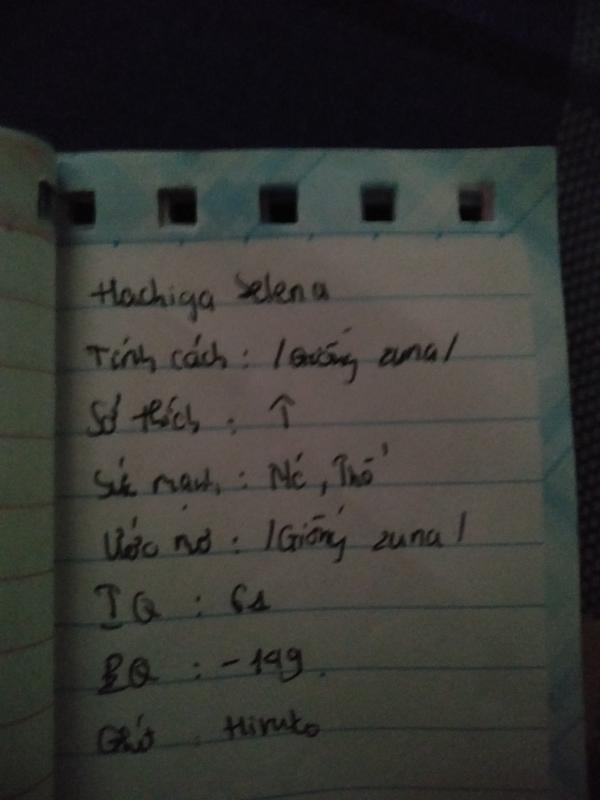 Hachiga Selena
Tính cách : /Giống zuna/
Sở thích : ↑
Sức mạnh : Nc, Thổ
Ước mơ : /Giống zuna/
IQ : 61
EQ : -149.
Ghét : Hiruko